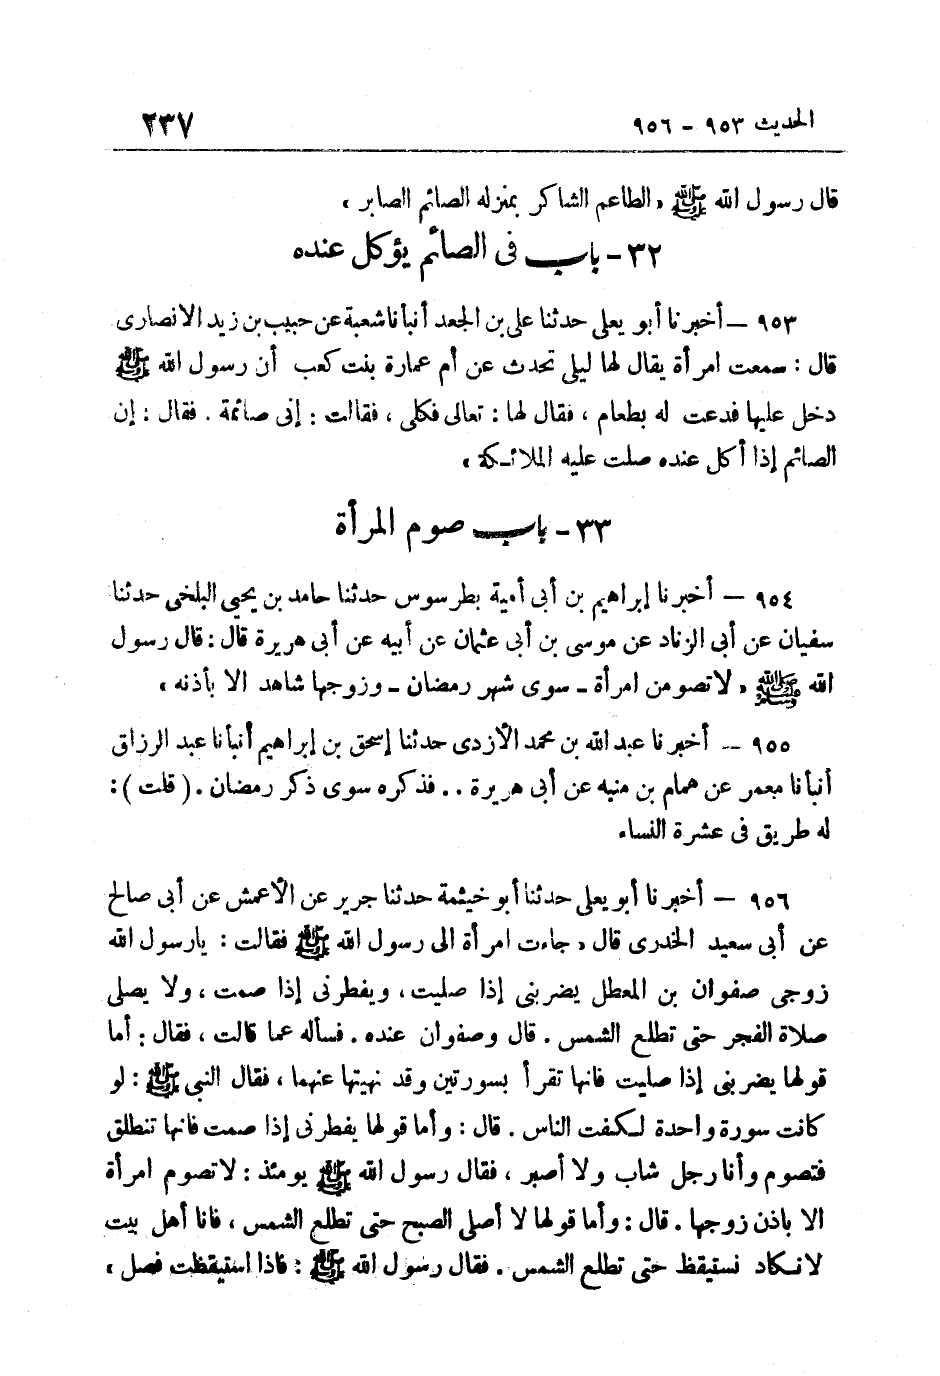 الحديث ٩٥٣ - ٩٥٦
٢٣٧
قال رسول الله ﷺ «الطاعم الشاكر بمنزله الصائم الصابر»
٣٢ - باب فى الصائم يؤكل عنده
٩٥٣ - أخبرنا أبو يعلى حدثنا على بن الجعد أنبأنا شعبة عن حبيب بن زيد الانصارى
قال: سمعت امرأة يقال لها ليلى تحدث عن أم عمارة بنت كعب أن رسول الله ﷺ
دخل عليها فدعت له بطعام، فقال لها: تعالى فكلى، فقالت: إنى صائمة. فقال: إن
الصائم إذا أكل عنده صلت عليه الملائكة»
٣٣ - باب صوم المرأة
٩٥٤ - أخبرنا إبراهيم بن أبى أمية بطرسوس حدثنا حامد بن يحيى البلخى حدثنا
سفيان عن أبى الزناد عن موسى بن أبى عثمان عن أبيه عن أبى هريرة قال: قال رسول
الله ﷺ «لا تصومن امرأة - سوى شهر رمضان - وزوجها شاهد الا بأذنه»
٩٥٥ - أخبرنا عبد الله بن محمد الأزدى حدثنا إسحق بن إبراهيم أنبأنا عبد الرزاق
أنبأنا معمر عن همام بن منبه عن أبى هريرة .. فذكره سوى ذكر رمضان. (قلت):
له طريق فى عشرة النساء
٩٥٦ - أخبرنا أبو يعلى حدثنا أبو خيثمة حدثنا جرير عن الأعمش عن أبى صالح
عن أبى سعيد الخدرى قال «جاءت امرأة الى رسول الله ﷺ فقالت: يارسول الله
زوجى صفوان بن المعطل يضربنى إذا صليت، ويفطرنى إذا صمت، ولا يصلى
صلاة الفجر حتى تطلع الشمس. قال وصفوان عنده. فسأله عما قالت، فقال: أما
قولها يضربنى إذا صليت فانها تقرأ بسورتين وقد نهيتها عنهما، فقال النبى ﷺ: لو
كانت سورة واحدة لكفت الناس. قال: وأما قولها يفطرنى إذا صمت فانها تنطلق
فتصوم وأنا رجل شاب ولا أصبر، فقال رسول الله ﷺ يومئذ: لا تصوم امرأة
الا باذن زوجها. قال: وأما قولها لا أصلى الصبح حتى تطلع الشمس، فانا أهل بيت
لا نكاد نستيقظ حتى تطلع الشمس. فقال رسول الله ﷺ: فاذا استيقظت فصل»